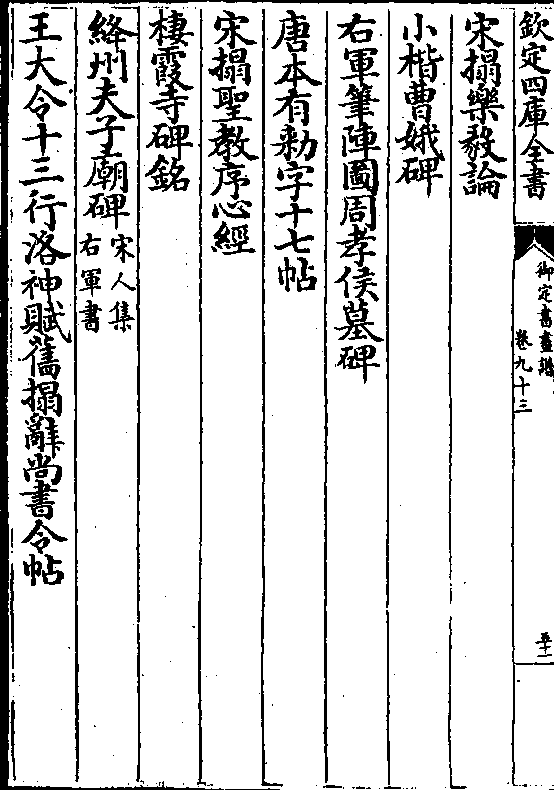 欽定四庫全書
御定書畫譜
卷九十三
五十二
宋搨樂毅論
小楷曹娥碑
右軍筆陣圖周孝侯墓碑
唐本有勅字十七帖
宋搨聖教序心經
棲霞寺碑銘
絳州夫子廟碑宋人集右軍書
王大令十三行洛神賦舊搨辭尚書令帖